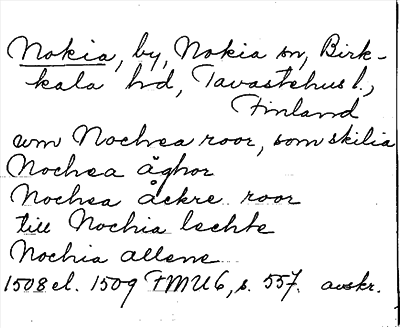 Nokia, by, Nokia sn, Birk-
kala hd, Tavastehus l.,
Finland
um Nochea roor, som skilia
Nochea äghor
Nochea åckre roor
till Nochia lechte
Nochia allene
1508 el. 1509 FMU 6, s. 557. avskr.